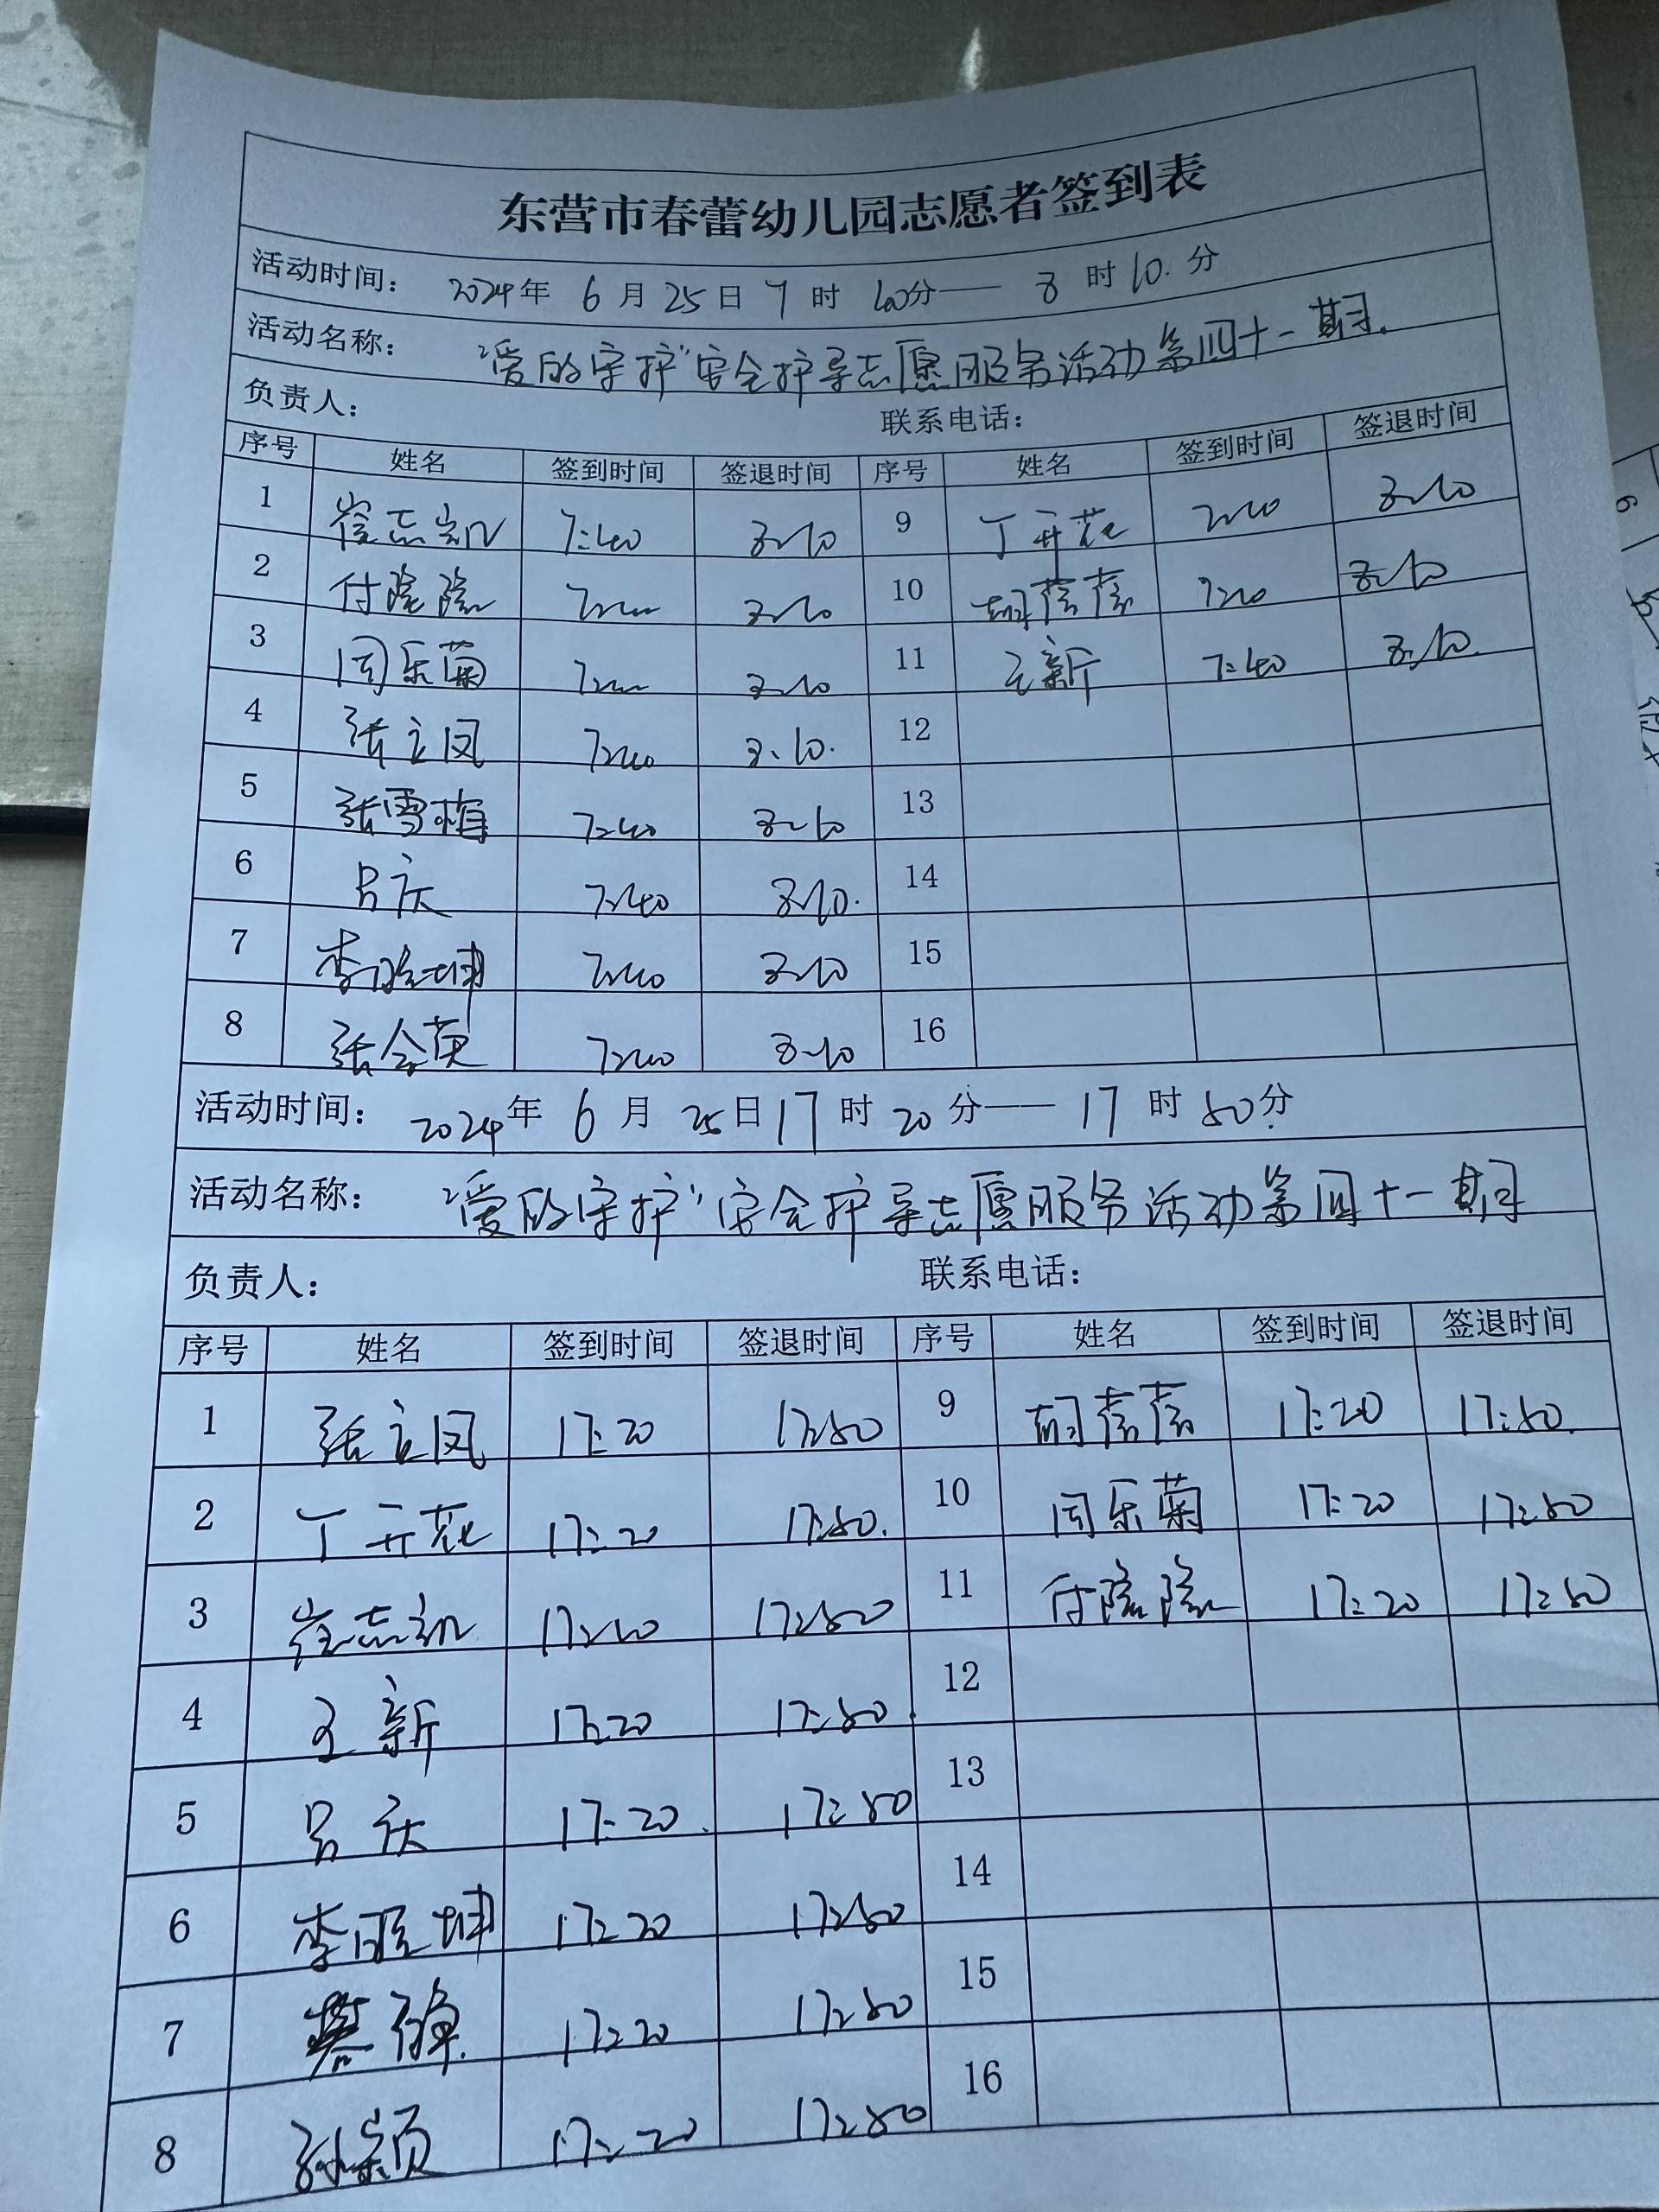 东营市春蕾幼儿园志愿者签到表
活动时间： 2024年 6 月 25 日 7 时 40分—— 8 时 10. 分
活动名称： “爱的守护”安全护导志愿服务活动第四十一期.
负责人： 联系电话：
序号 姓名 签到时间 签退时间 序号 姓名 签到时间 签退时间
1 崔志凯 7:40 8:10 9 丁开花 7:40 8:10
2 付院院 7:40 8:10 10 胡蓓蓓 7:40 8:10
3 周乐菊 7:40 8:10 11 王新 7:40 8:10.
4 张立凤 7:40 8:10. 12
5 张雪梅 7:40 8:10 13
6 吕庆 7:40 8:10. 14
7 李 坤 7:40 8:10 15
8 张会英 7:40 8:10 16
活动时间： 2024年 6 月 25日17 时 20 分—— 17 时 50分.
活动名称： “爱的守护”安全护导志愿服务活动第四十一期
负责人： 联系电话：
序号 姓名 签到时间 签退时间 序号 姓名 签到时间 签退时间
1 张立凤 17:20 17:50 9 胡蓓蓓 17:20 17:50.
2 丁开花 17:20 17:50. 10 周乐菊 17:20 17:50
3 崔志凯 17:20 17:50 11 付院院 17:20 17:50
4 王新 17:20 17:50. 12
5 吕庆 17:20. 17:50 13
6 李 坤 17:20 17:50 14
7 17:20 17:50 15
8 孙颖 17:20 17:50 16